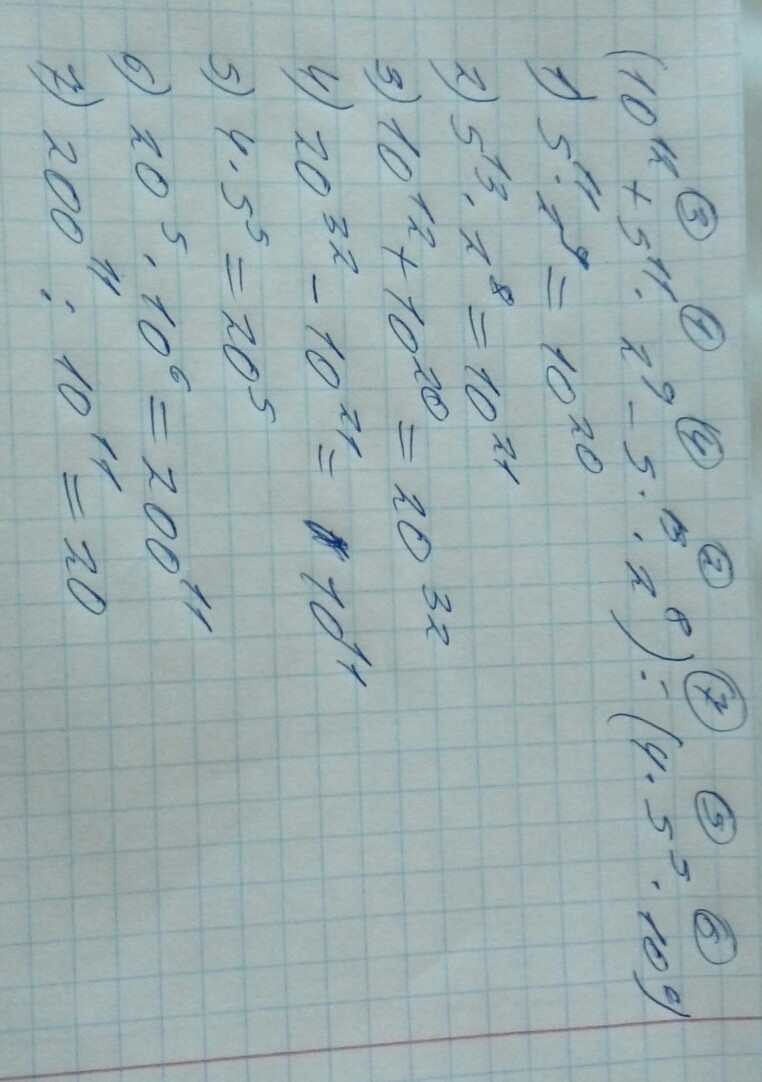 ③ ① ④ ② ⑦ ⑤ ⑥
(10¹² + 5¹¹ · 2⁹ - 5¹³ · 2⁸) : (4 · 5⁵ · 10⁶)
1) 5¹¹ · 2⁹ = 10²⁰
2) 5¹³ · 2⁸ = 10²¹
3) 10¹² + 10²⁰ = 20³²
4) 20³² - 10²¹ = 10¹¹
5) 4 · 5⁵ = 20⁵
6) 20⁵ · 10⁶ = 200¹¹
7) 200¹¹ : 10¹¹ = 20